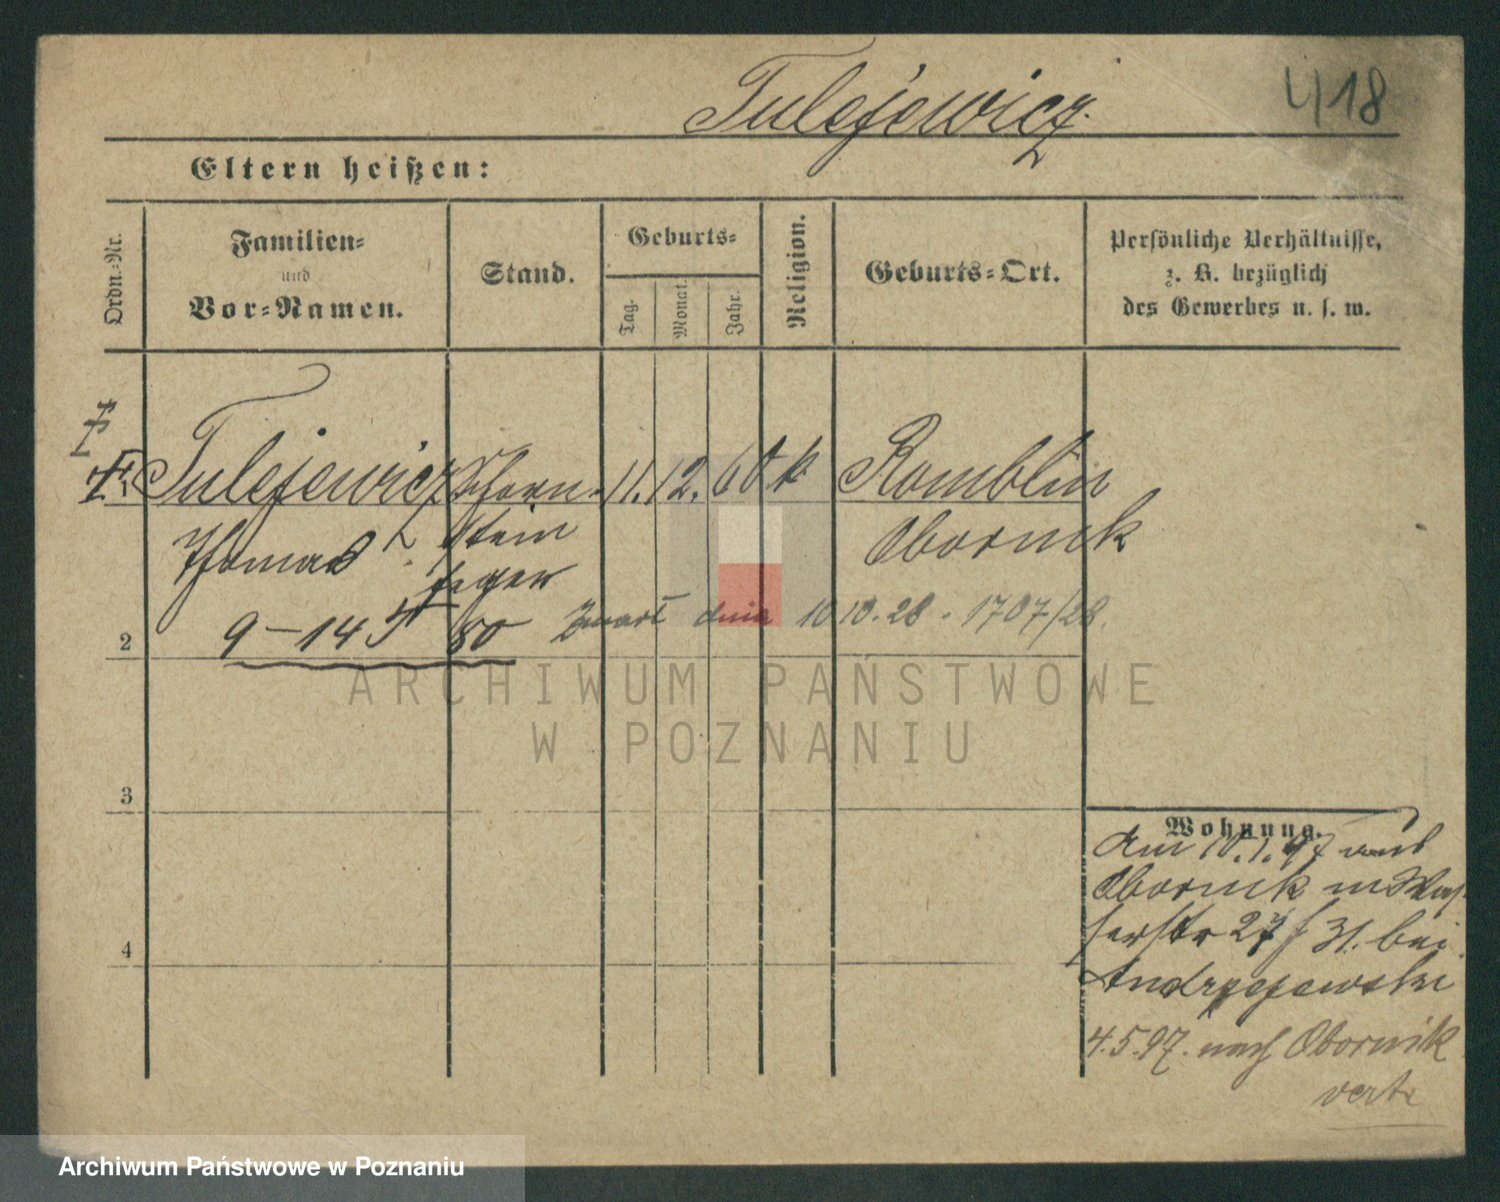 Tulejewicz
418
Eltern heißen:
Ordn.-Nr.
Familien- und Vor-Namen.
Stand.
Geburts-
Tag.
Monat.
Jahr.
Religion.
Geburts-Ort.
Persönliche Verhältnisse,
z. B. bezüglich
des Gewerbes u. s. w.
Tulejewicz Schorn- 11. 12. 60 k. Romblin
Thomas stein Obornik
feger
9-145 80
Zmarł dnia 10.10.28. 1707/28.
2
3
4
Wohnung.
Am 10.1.97 aus
Obornik n. Was-
serstr 27 f 31. bei
Andrzejewski
4.5.97. nach Obornik
verte
ARCHIWUM PAŃSTWOWE
W POZNANIU
Archiwum Państwowe w Poznaniu